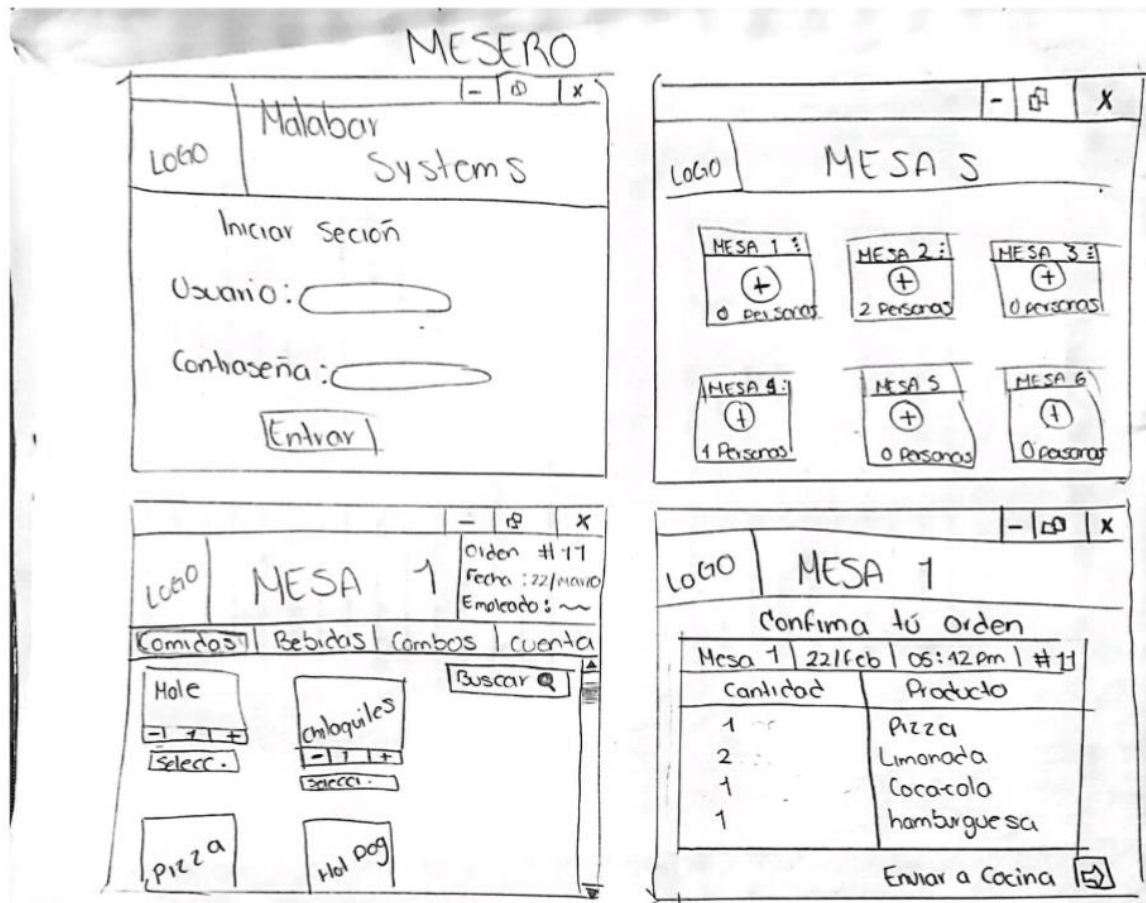 MESERO
LOGO
Malabar
Systems
Iniciar Seción
Usuario:
Contraseña:
Entrar
LOGO
MESAS
MESA 1
0 personas
MESA 2
2 personas
MESA 3
0 personas
MESA 4
1 Personas
MESA 5
0 personas
MESA 6
0 personas
LOGO
MESA 1
Orden #11
Fecha: 22/marzo
Empleado:
Comidas Bebidas Combos cuenta
Buscar
Mole
- 1 +
Selecc.
Chilaquiles
- 1 +
Selecci.
Pizza
Hot Dog
LOGO
MESA 1
Confima tú orden
Mesa 1 22/feb 05:12pm #11
Cantidad Producto
1 Pizza
2 Limonada
1 Coca-cola
1 hamburguesa
Enviar a Cocina